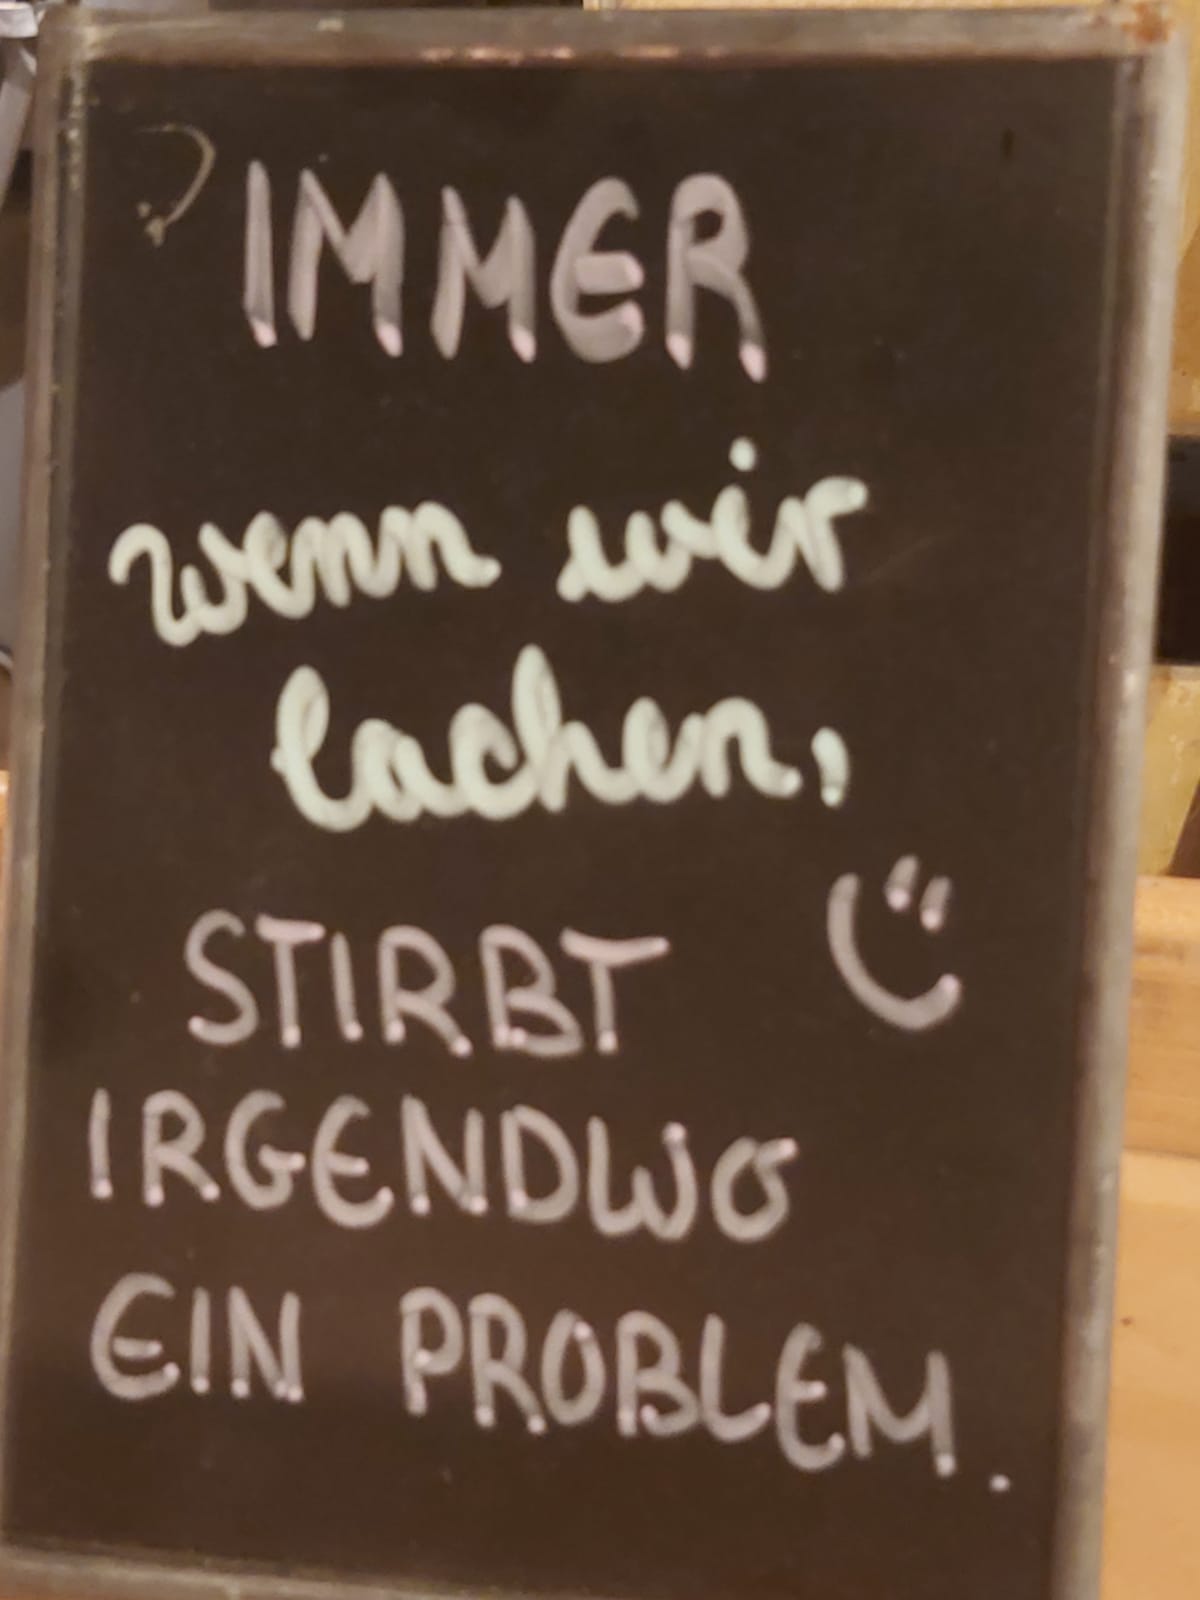 IMMER
wenn wir
lachen,
STIRBT
IRGENDWO
EIN PROBLEM.